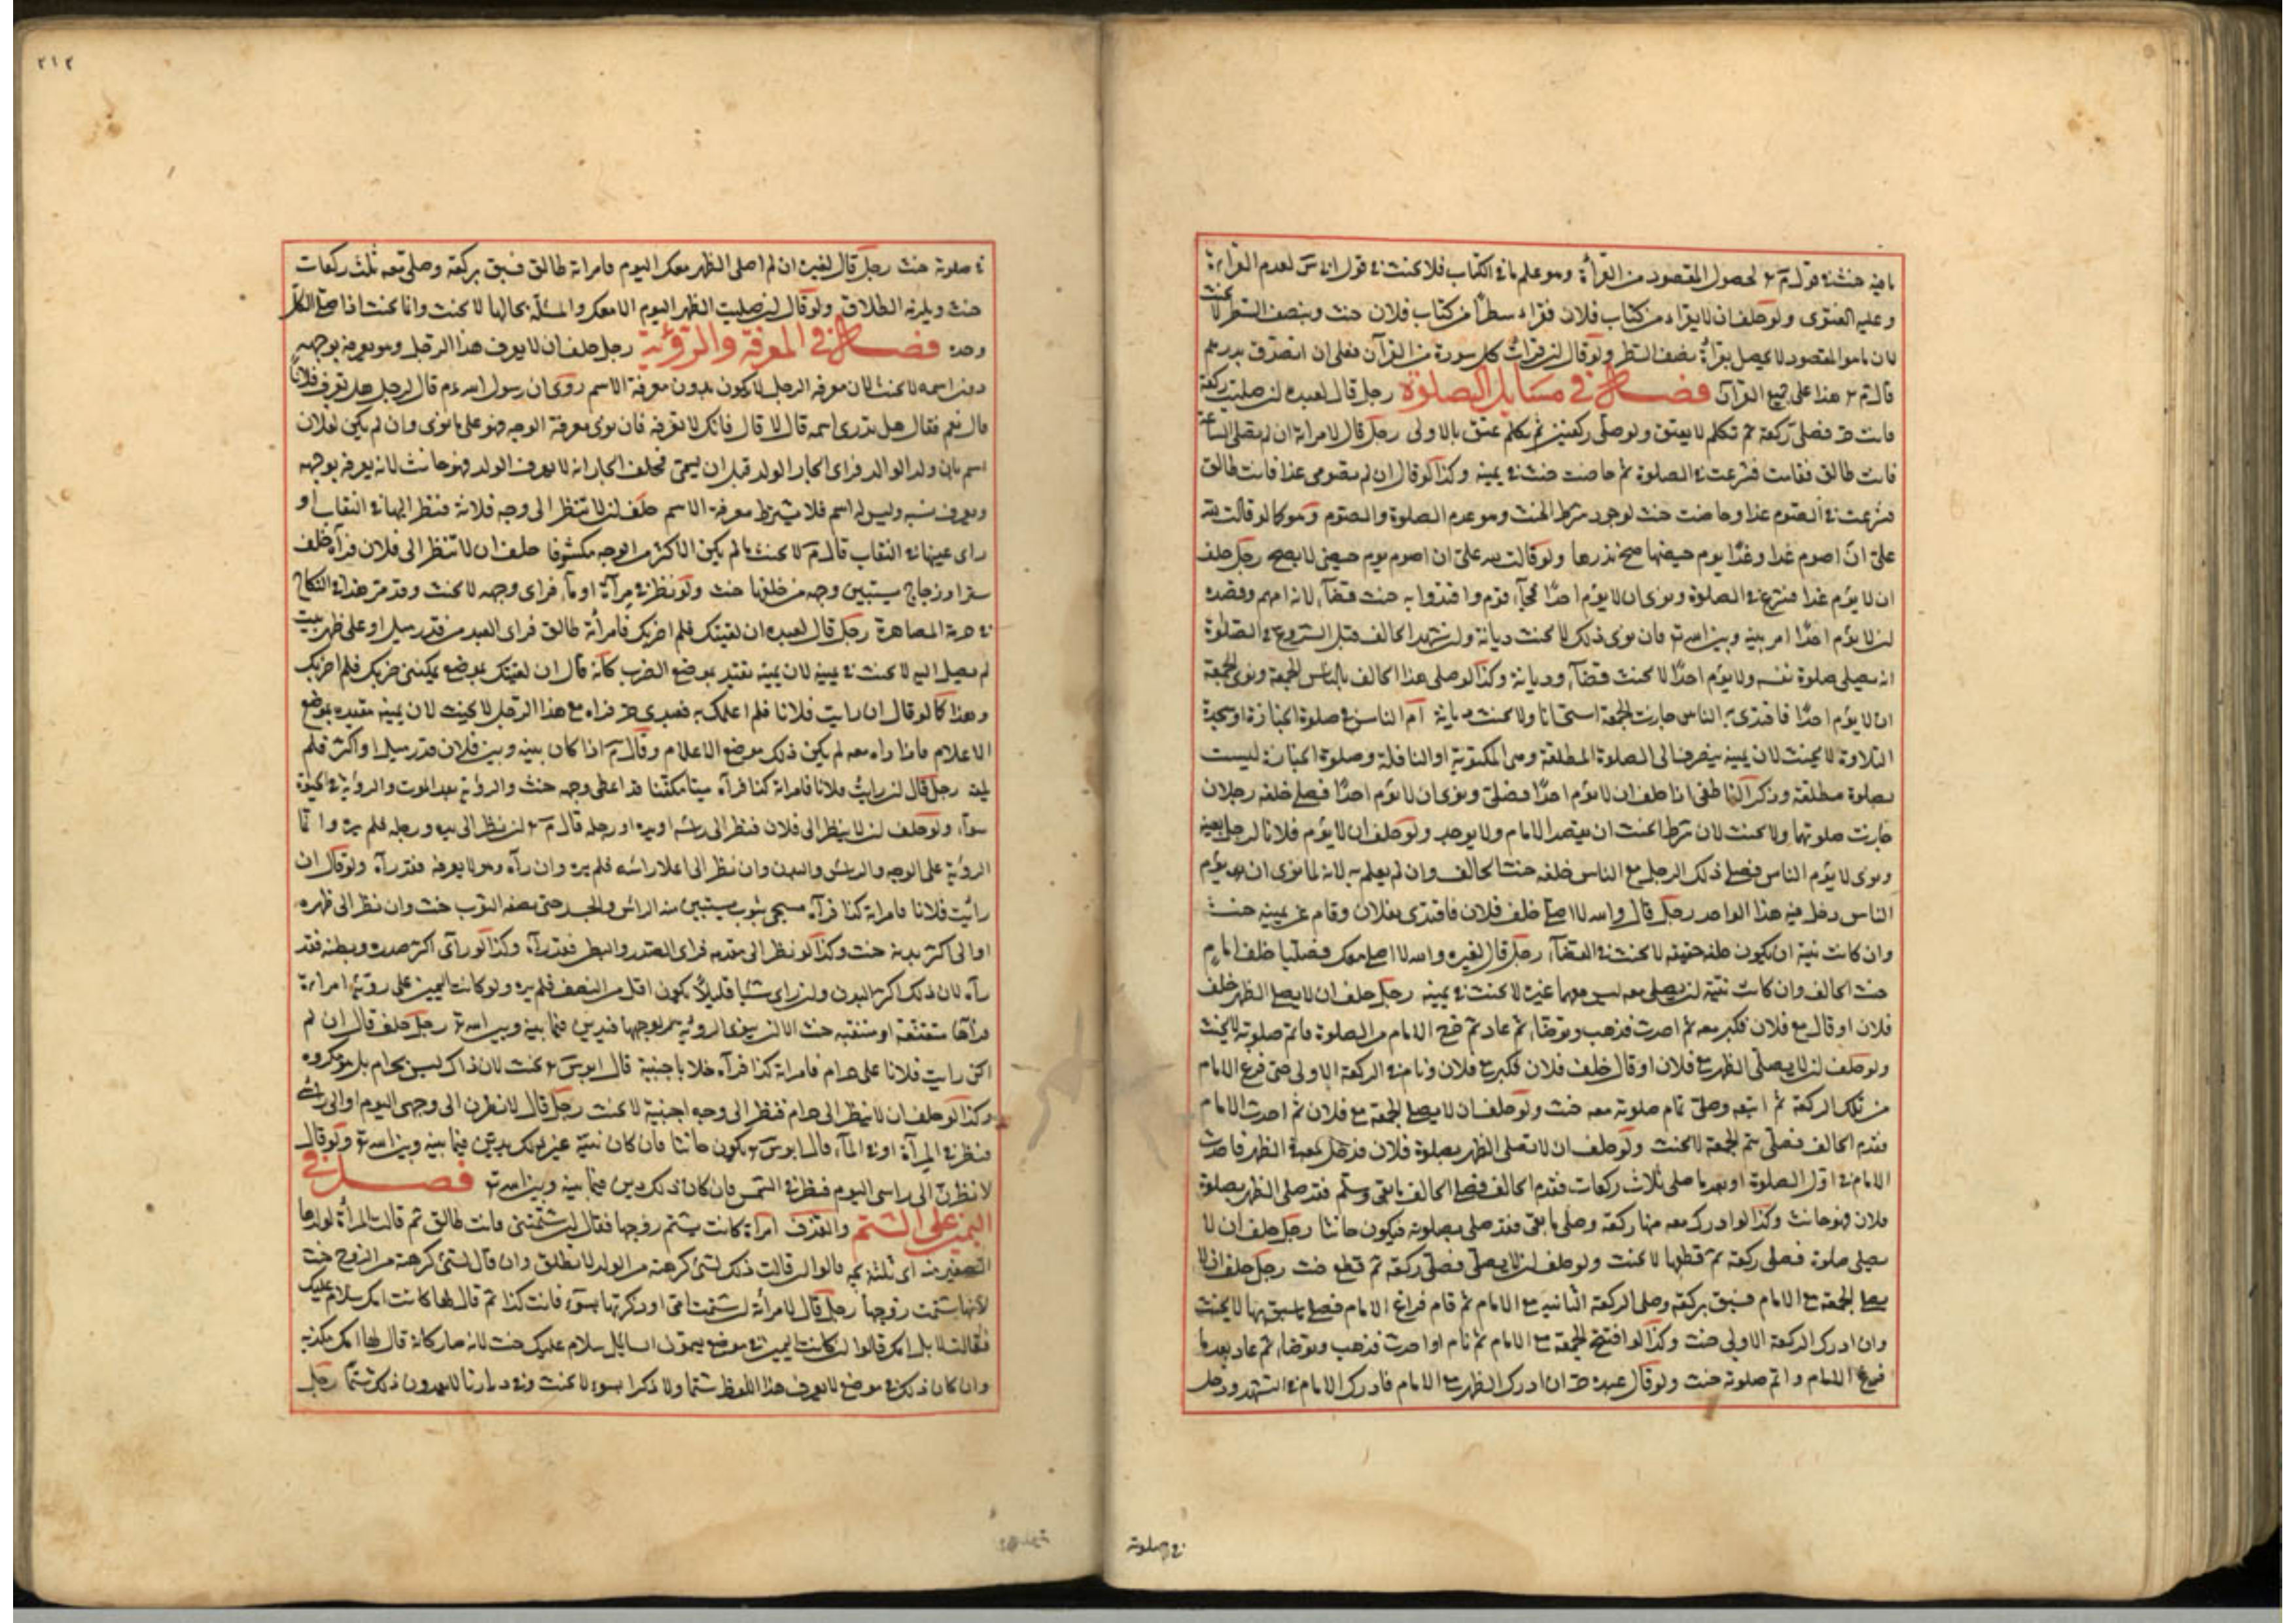 ما فيه حنث في قول م ر لحصول المقصود من القرأة وهو علم ما في الكتاب فلا يحنث في قول س لعدم القراءة
وعليه الفتوى ولو حلف ان لا يقراء من كتاب فلان فقراء سطرا من كتاب فلان حنث وبنصف السطر لا يحنث
لان ما هو المقصود لا يحصل بقرأة نصف السطر ولو قال لن قرات كل سورة من القرآن فعلى ان اتصدق بدرهم
قال م ر هذا على جميع القرآن فصل في مسايل الصلوة رجل قال لعبده لن صليت ركعة
فانت حر فصلى ركعة ثم تكلم لا يعتق ولو صلى ركعتين ثم تكلم عتق بالاولى رجل قال لامراته ان لم تصلى الساعة
فانت طالق فقامت فشرعت في الصلوة ثم حاضت حنث في يمينه وكذا لو قال ان لم تصومي غدا فانت طالق
فشرعت في الصوم غدا وحاضت حنث لوجود شرط الحنث وهو عدم الصلوة والصوم وهو كما لو قالت لله
على ان اصوم غدا وغدا يوم حيضها صح نذرها ولو قالت لله على ان اصوم يوم حيضي لا يصح رجل حلف
ان لا يؤم غدا فشرع في الصلوة ونوى ان لا يؤم احدا فجآء قوم واقتدوا به حنث قضآء لانه امهم وقصده
لن لا يؤم احدا امر بينه وبين الله تع فان نوى ذلك لا يحنث ديانة ولن شهد الحالف قبل الشروع في الصلوة
انه يصلي صلوة نفسه ولا يؤم احدا لا يحنث قضآء وديانة وكذا لو صلى هذا الحالف بالناس الجمعة ونوى في الجمعة
ان لا يؤم احدا فاقتدى به الناس جازت الجمعة استحسانا ولا يحنث ديانة ام الناس في صلوة الجنازة او سجدة
التلاوة لا يحنث لان يمينه ينصرف الى الصلوة المطلقة وهي المكتوبة او النافلة وصلوة الجنازة ليست
بصلوة مطلقة وذكر الناطفي اذا حلف ان لا يؤم احدا فصلى ونوى ان لا يؤم احدا فصلى خلفه رجلان
جازت صلوتهما ولا يحنث لان شرط الحنث ان يقصد الامام ولا يوجد ولو حلف ان لا يؤم فلانا لرجل بعينه
ونوى لا يؤم الناس فصلى ذلك الرجل مع الناس خلفه حنث الحالف وان لم يعلم به لانه لما نوى ان لا يؤم
الناس دخل فيه هذا الواحد رجل قال والله لا اصلى خلف فلان فاقتدى بفلان وقام عن يمينه حنث
وان كانت نية ان يكون خلفه حقيقة لا يحنث في القضآء رجل قال لغيره والله لا اصلى معك فصليا خلف امام
حنث الحالف وان كانت نيته لن يصلي معه ليس معهما غيره لا يحنث في يمينه رجل حلف ان لا يصلى الظهر خلف
فلان او قال مع فلان فكبر معه ثم احدث فذهب وتوضا ثم عاد ثم فرغ الامام من الصلوة فاتم صلوته لا يحنث
ولو حلف لن لا يصلى الظهر مع فلان او قال خلف فلان فكبر مع فلان ونام في الركعة الاولى حتى فرغ الامام
من تلك الركعة ثم اتبعه وصلى تمام صلوته معه حنث ولو حلف ان لا يصلى الجمعة مع فلان ثم احدث الامام
فقدم الحالف فصلى بهم الجمعة لا يحنث ولو حلف ان لا تصلى الظهر بصلوة فلان فدخل معه في الظهر فاحدث
الامام في اول الصلوة او بعد ما صلى ثلاث ركعات فقدم الحالف فصلى الحالف ما بقى وسلم فقد صلى الظهر بصلوة
فلان فهو حانث وكذا لو ادرك معه منها ركعة وصلى ما بقى فقد صلى بصلوته فيكون حانثا رجل حلف ان لا
يصلي صلوة فصلى ركعة ثم قطعها لا يحنث ولو حلف لن لا يصلى فصلى ركعة ثم قطع حنث رجل حلف ان لا
يصلى الجمعة مع الامام فسبق بركعة وصلى الركعة الثانية مع الامام ثم قام فراغ الامام فصلى ما سبق بها لا يحنث
وان ادرك الركعة الاولى حنث وكذا لو افتتح الجمعة مع الامام ثم نام او احدث فذهب وتوضا ثم عاد بعد ما
فرغ الامام واتم صلوته حنث ولو قال عبده حر ان ادرك الظهر مع الامام فادرك الامام في التشهد ودخل
في صلوته
٢١٢
في صلوته حنث رجل قال لغيره ان لم اصلى الظهر معك اليوم فامراته طالق فسبق بركعة وصلى معه ثلث ركعات
حنث ويلزمه الطلاق ولو قال لن صليت الظهر اليوم الا معك والمسئلة بحالها لا يحنث وانما يحنث اذا صلى الكل
وحده فصل في المعرفة والرؤية رجل حلف ان لا يعرف هذا الرجل وهو يعرفه بوجهه
دون اسمه لا يحنث لان معرفة الرجل لا يكون بدون معرفة الاسم روى ان رسول الله عم قال لرجل هل تعرف فلانا
قال نعم فقال هل تدرى اسمه قال لا قال فانك لا تعرفه فان نوى معرفة الوجه فهو على ما نوى وان لم يكن لفلان
اسم بان ولد الوالد فراى الجار الولد قبل ان يسمى فحلف الجار انه لا يعرف الولد فهو حانث لانه يعرفه بوجهه
ويعرف نسبه وليس له اسم فلا يشترط معرفة الاسم حلف لن لا تنظر الى وجه فلانة فنظر اليها في النقاب او
راى عينيها في النقاب قال م لا يحنث ما لم يكن الاكثر من الوجه مكشوفا حلف ان لا تنظر الى فلان فرآه خلف
ستر او زجاج يستبين وجهه من خلفها حنث ولو نظر في مرآة او مآء فراى وجهه لا يحنث وقد مر هذا في النكاح
في حرمة المصاهرة رجل قال لعبده ان لقيتك فلم اضربك فامرأته طالق فراى العبد من قدر ميل او على ظهر بيت
لم يصل اليه لا يحنث في يمينه لان يمينه تقيد بموضع الضرب كانه قال ان لقيتك بموضع يمكنني ضربك فلم اضربك
وهذا كما لو قال ان رايت فلانا فلم اعلمك به فعبدى حر فراه مع هذا الرجل لا يحنث لان يمينه مقيدة بموضع
الاعلام فاذا راه معه لم يكن ذلك موضع الاعلام وقال م اذا كان بينه وبين فلان قدر ميل او اكثر فلم
يلقه رجل قال لن رايت فلانا فامراته كذا فرآه ميتا مكفنا قد اعطى وجهه حنث والرؤية بعد الموت والرؤية في الحيوة
سوآء ولو حلف لن لا ينظر الى فلان فنظر الى رئسه او يده او رجله قال م ر لن نظر الى يده ورجله فلم يره وانما
الرؤية على الوجه والرئس والبدن وان نظر الى اعلا رائسه فلم يره وان رآه وهو لا يعرفه فقد رآه ولو قال ان
رائيت فلانا فامراته كذا فرآه مسجى بثوب يستبين منه الرائس والجسد حتى يصفه الثوب حنث وان نظر الى ظهره
او الى اكثر بدنه حنث وكذا لو نظر الى مقدمه فراى الصدر والبطن فقد رآه وكذا لو رآى اكثر صدره وبطنه فقد
رآه لان ذلك اكثر البدن ولن راى شيا قليلا يكون اقل من النصف فلم يره ولو كانت اليمين على رؤية امراءة
فرآها متقنعة او متنقبة حنث الا لن يعنى الرؤية بوجهها فيدين فيما بينه وبين الله تع رجل حلف قال ان لم
اكن رايت فلانا على حرام فامراته كذا فرآه خلا باجنبية قال ابو س ر يحنث لان ذاك ليس بحرام بل مكروه
وكذا لو حلف ان لا ينظر الى حرام فنظر الى وجه اجنبية لا يحنث رجل قال لا نظرن الى وجهى اليوم او الى رئسى
فنظر في المرآة او في المآء قال ابو س ر يكون حانثا فان كان نيته غير ذلك يدين فيما بينه وبين الله تع ولو قال
لا نظرن الى راسى اليوم فنظر في الشمس فان كان ذلك يدين فيما بينه وبين الله تع فصل في
اليمين على الشتم والقذف امراة كانت يشتم زوجها فقال لن شتمتنى فانت طالق ثم قالت المرأة لولدها
الصغير منه قالوا لن قالت ذلك لشئ كرهته من الولد لا تطلق وان قال لشئ كرهته من الزوج حنث
لانها شتمت زوجها رجل قال لامرأته لن شتمت امى او ذكرتها بسوء فانت كذا ثم قال لها كانت امك سلام عليك
فقالت لا بل امك قالوا لن كانت اليمين في موضع يسمون السايل سلام عليك حنث لانه صار كانه قال لها امك مكديه
وان كان ذلك في موضع لا يعرف هذا اللفظ شتما ولا ذكرا بسوء لا يحنث وفي ديارنا لا يعدون ذلك شتما رجل